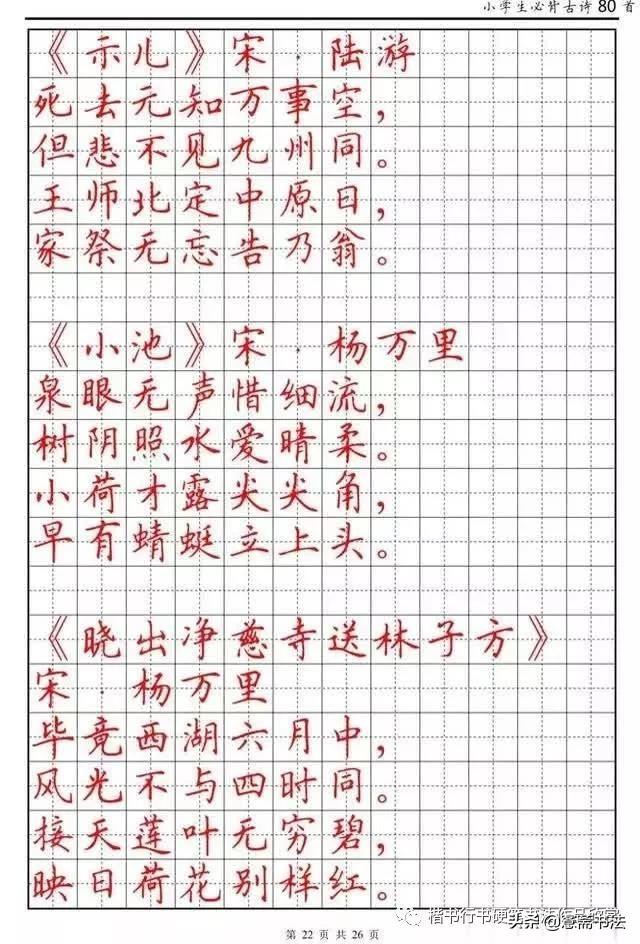 小学生必背古诗 80 首
《示儿》宋·陆游
死去元知万事空，
但悲不见九州同。
王师北定中原日，
家祭无忘告乃翁。
《小池》宋·杨万里
泉眼无声惜细流，
树阴照水爱晴柔。
小荷才露尖尖角，
早有蜻蜓立上头。
《晓出净慈寺送林子方》
宋·杨万里
毕竟西湖六月中，
风光不与四时同。
接天莲叶无穷碧，
映日荷花别样红。
第 22 页 共 26 页
楷书行书硬笔书法
头条 @慧斋书法